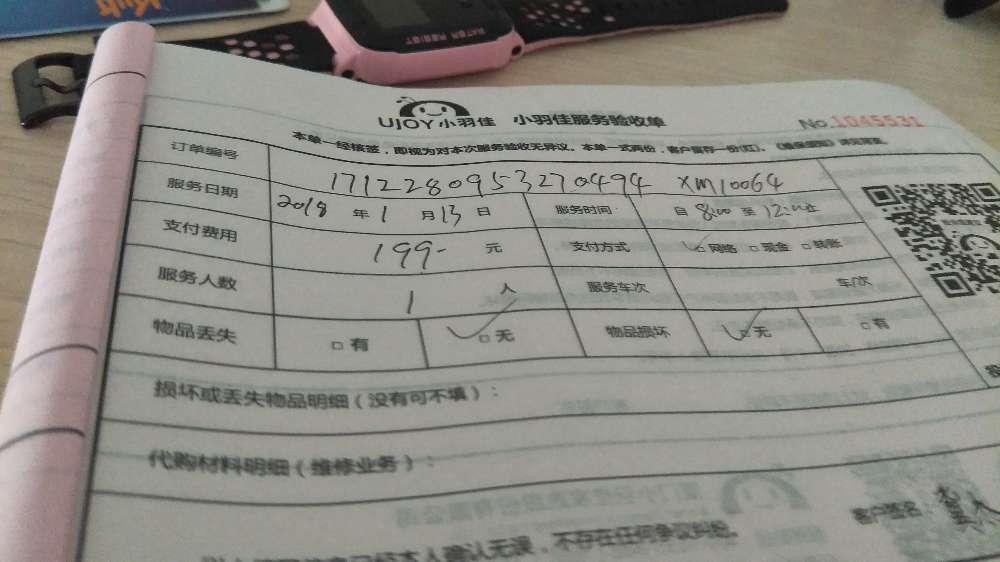 WATER RESIST
UJOY小羽佳 小羽佳服务验收单 No.1045531
本单一经核签，即视为对本次服务验收无异议。本单一式两份，客户留存一份(红)。
订单编号 171228095327 0494 XM10064
服务日期 2018 年 1 月 13 日 服务时间 自 8:00 至
支付费用 199- 元 支付方式 □网络 □现金 □转账
服务人数 1 人 服务车次 车/次
物品丢失 □有 □无 物品损坏 □无 □有
损坏或丢失物品明细（没有可不填）：
代购材料明细（维修业务）：
本人确认无误，不存在任何争议纠纷。
客户签名